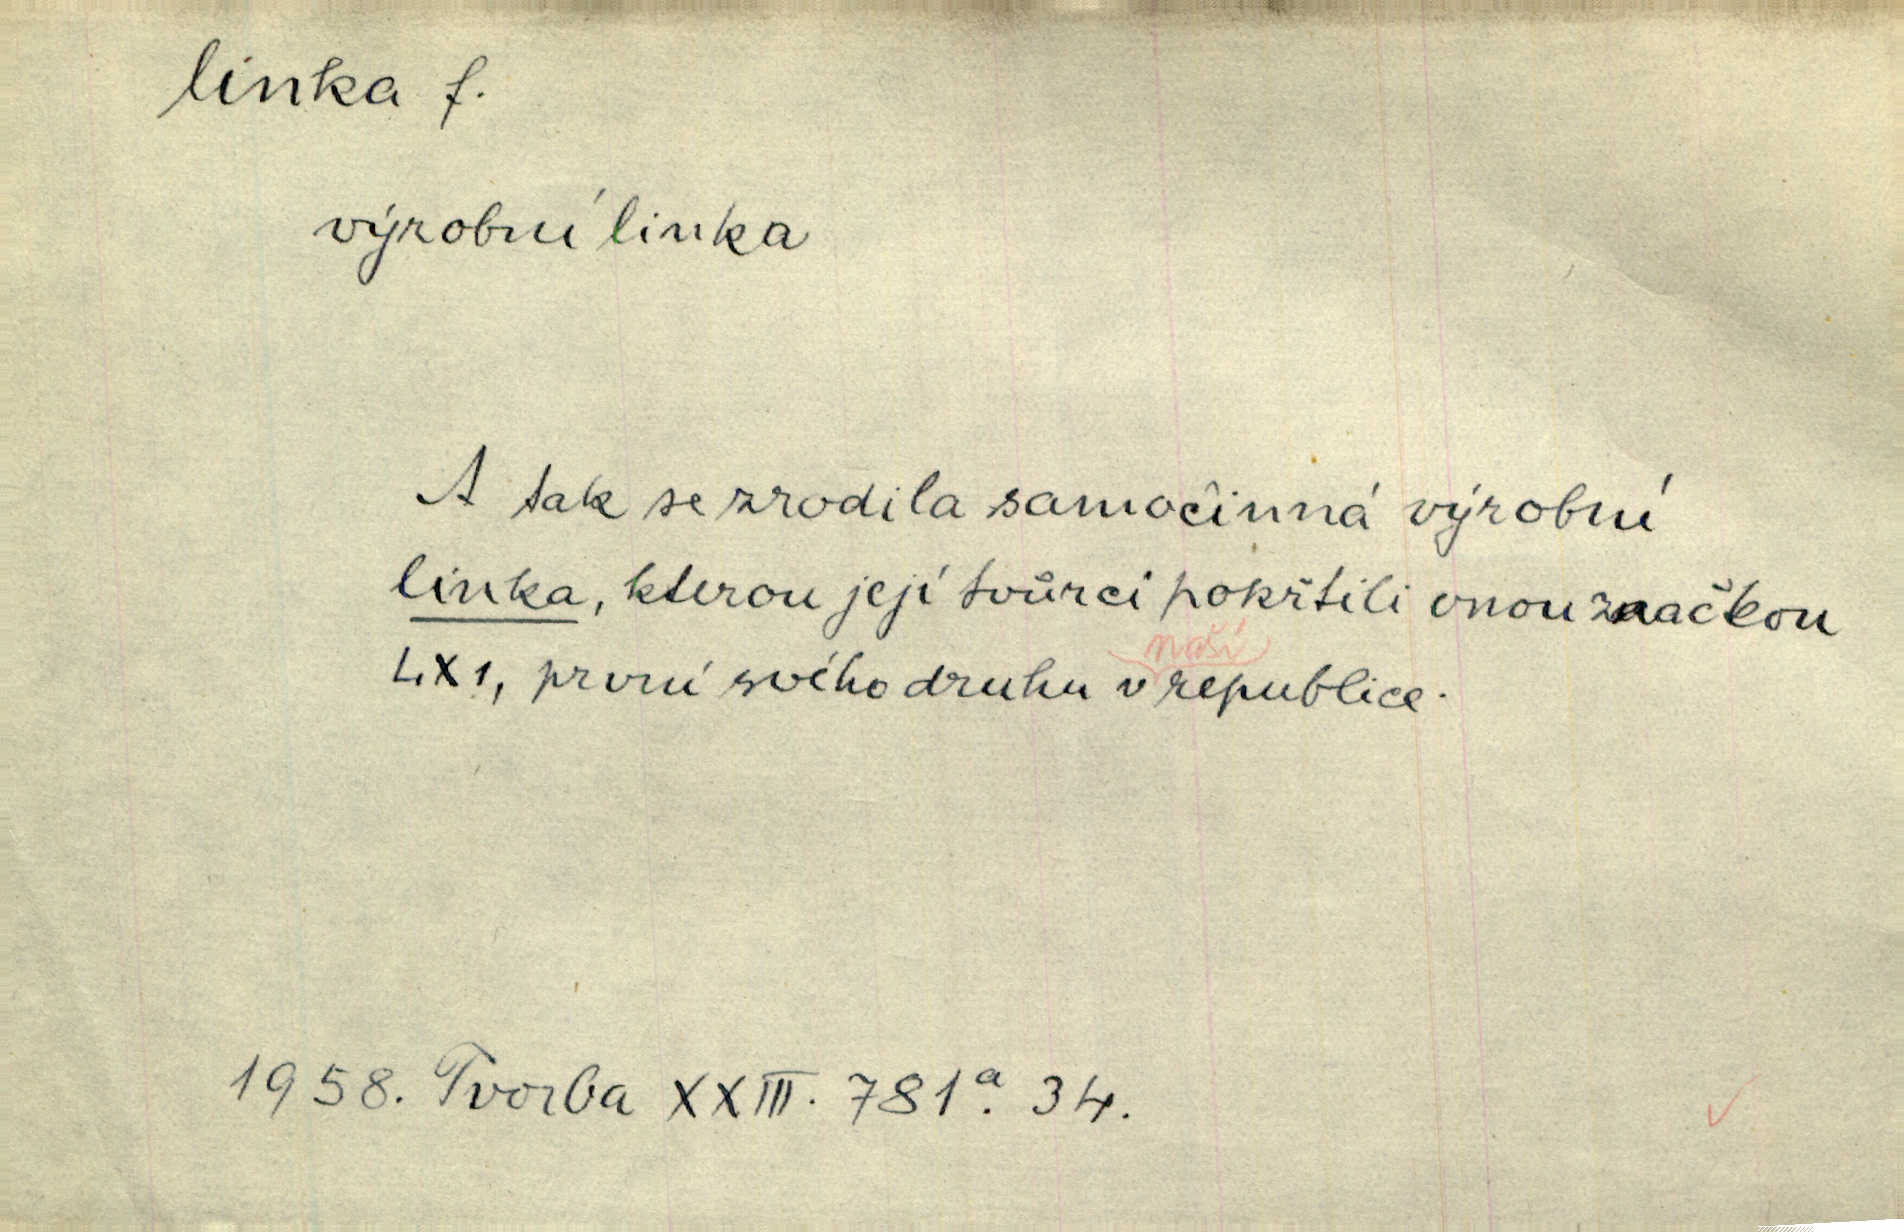 linka f.
výrobní linka
A tak se zrodila samočinná výrobní
linka, kterou její tvůrci pokřtili onou značkou
LX1, první svého druhu v naší republice.
1958. Tvorba XXIII. 781ª. 34.